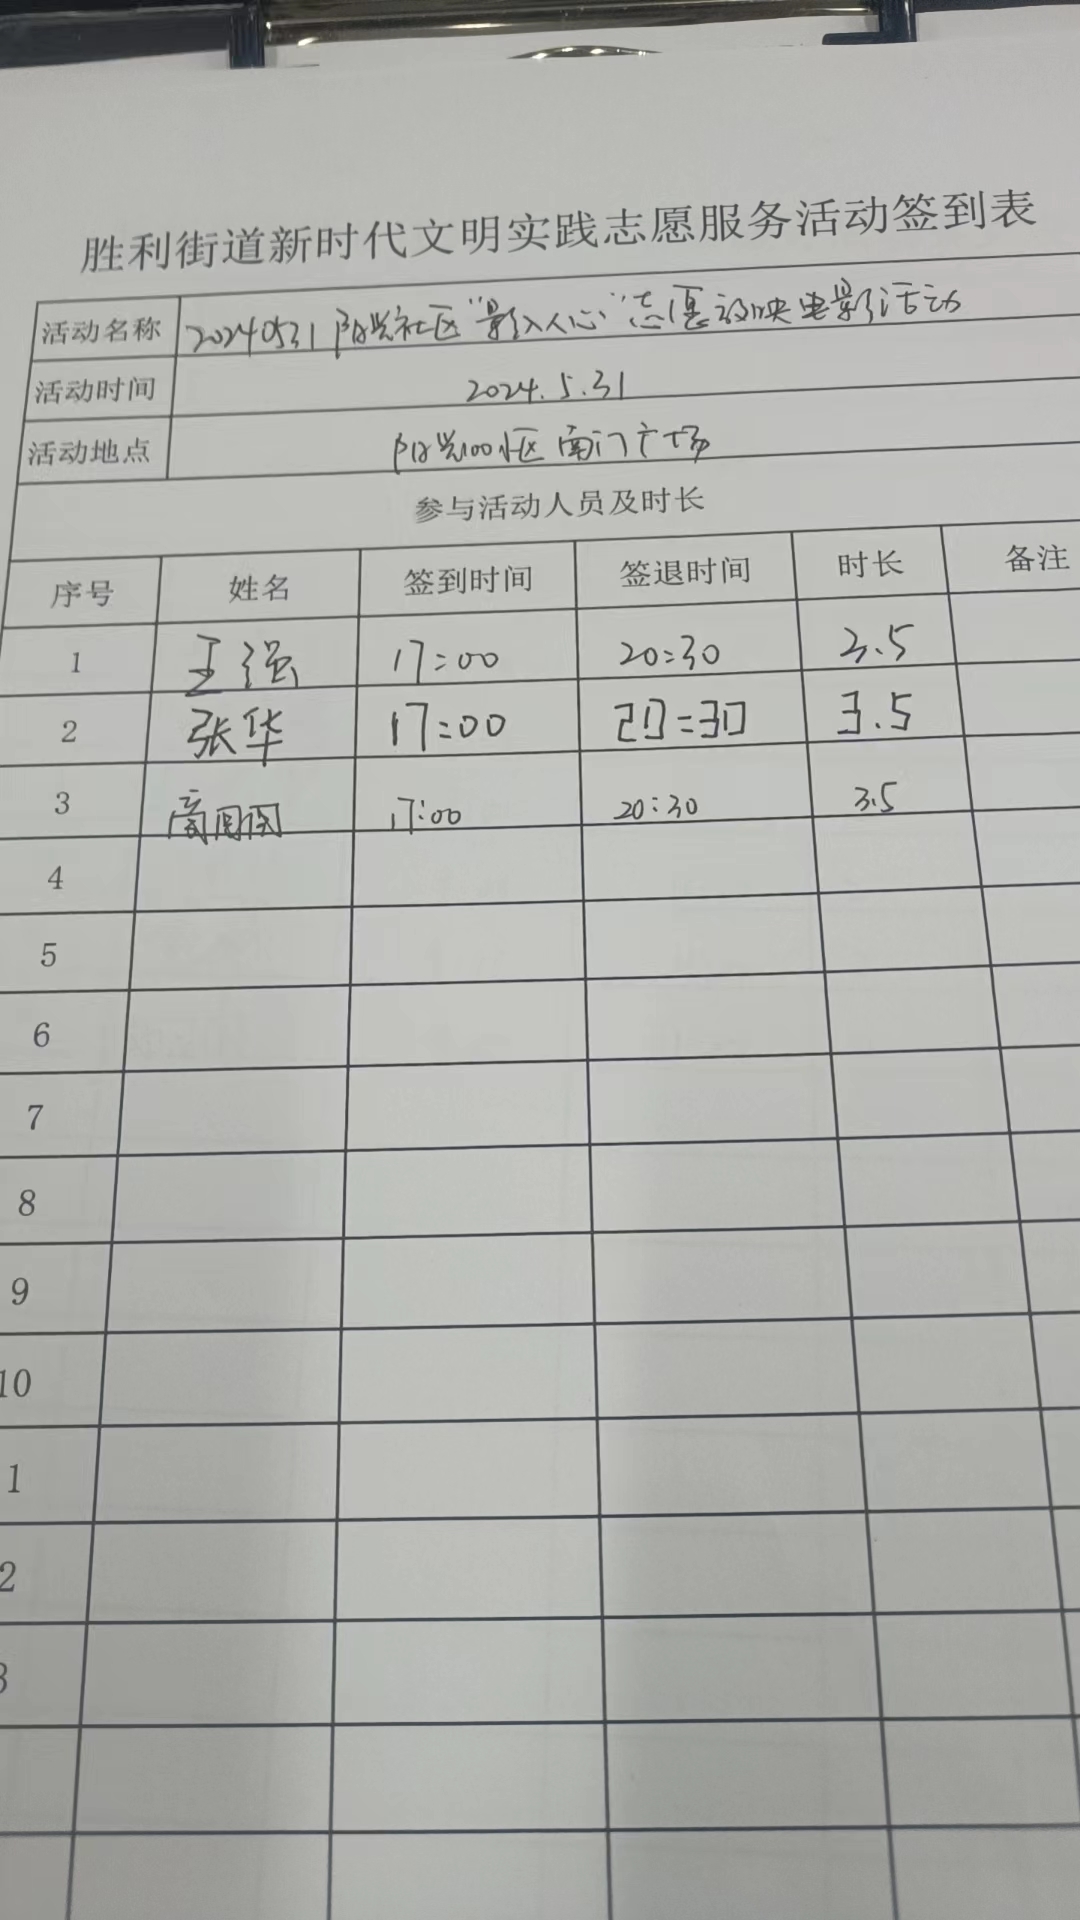 胜利街道新时代文明实践志愿服务活动签到表
活动名称 20240531阳光社区“影入人心”志愿放映电影活动
活动时间 2024.5.31
活动地点 阳光100小区南门广场
参与活动人员及时长
序号 姓名 签到时间 签退时间 时长 备注
1 王强 17:00 20:30 3.5
2 张华 17:00 20:30 3.5
3 17:00 20:30 3.5
4
5
6
7
8
9
10
1
2
3